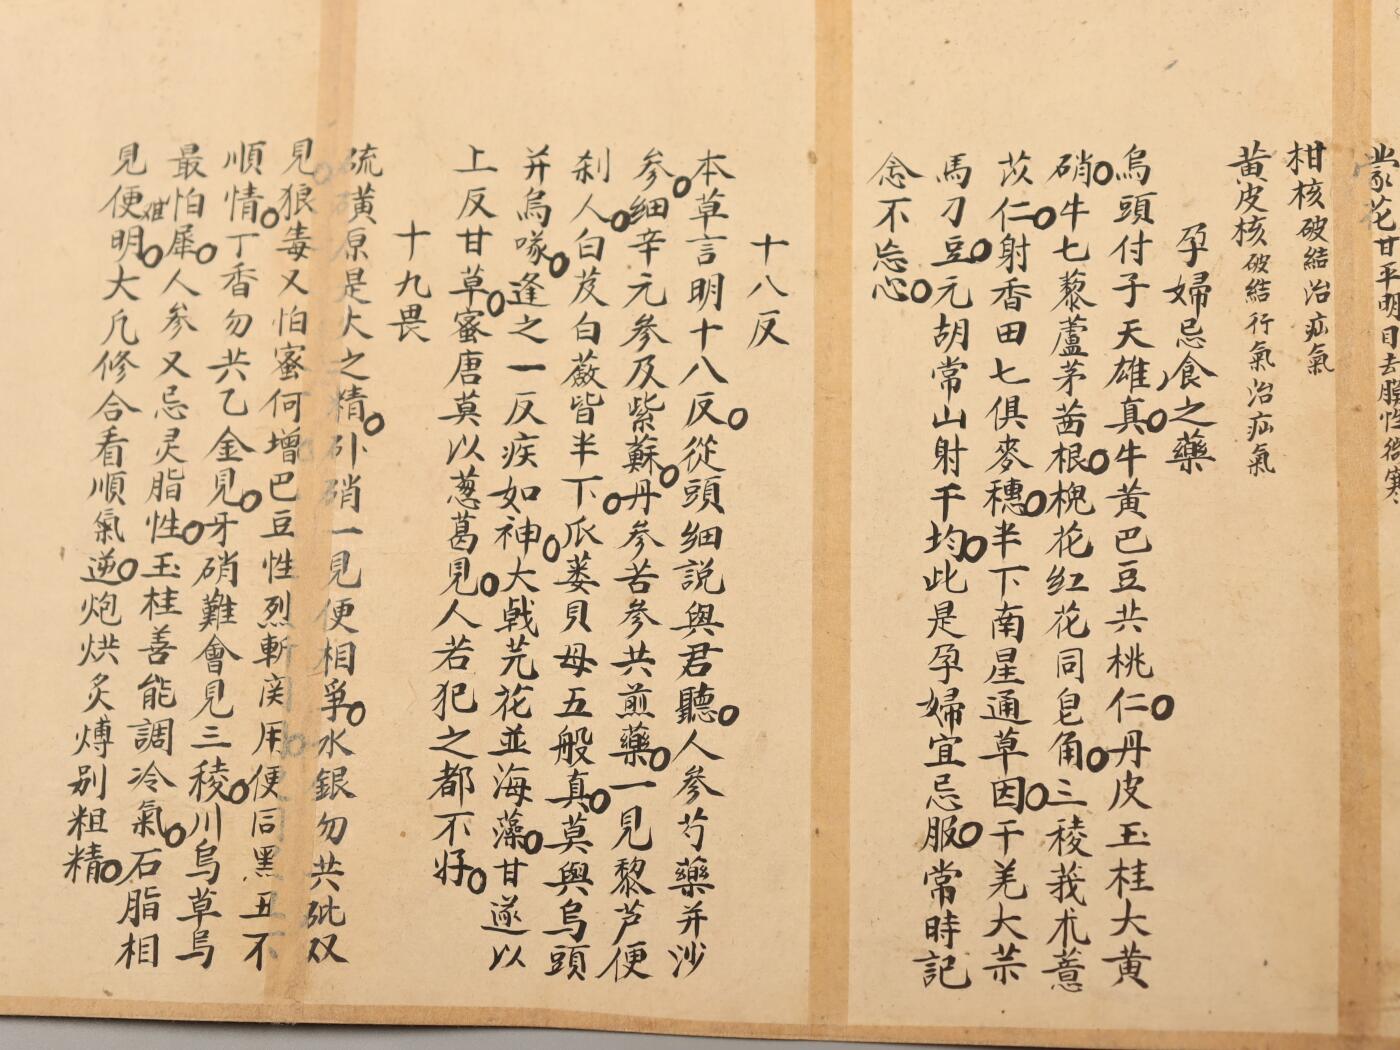 蒙花甘平明目去膜性微寒
柑核破結治疝氣
黃皮核破結行氣治疝氣
孕婦忌食之藥
烏頭付子天雄真牛黃巴豆共桃仁丹皮玉桂大黃
硝牛七藜蘆茅茜根槐花红花同皂角三稜莪朮薏
苡仁射香田七俱麥穗半下南星通草因干羌大芣
馬刀豆元胡常山射干均此是孕婦宜忌服常時記
念不忘心
十八反
本草言明十八反從頭細說與君聽人參芍藥并沙
参細辛元參及紫蘇丹参苦参共煎藥一見黎芦便
刹人白芨白蔹皆半下瓜蒌貝母五般真莫與烏頭
并烏喙逢之一反疾如神大戟芫花並海藻甘遂以
上反甘草蜜唐莫以葱葛見人若犯之都不好
十九畏
硫磺原是火之精朴硝一見便相爭水銀勿共砒双
見狼毒又怕蜜何增巴豆性烈斬関用便同黑丑不
順情丁香勿共乙金見牙硝難會見三稜川烏草烏
最怕犀人参又忌灵脂性玉桂善能調冷氣石脂相
見便难明大凢修合看順氣逆炮烘炙煿别粗精